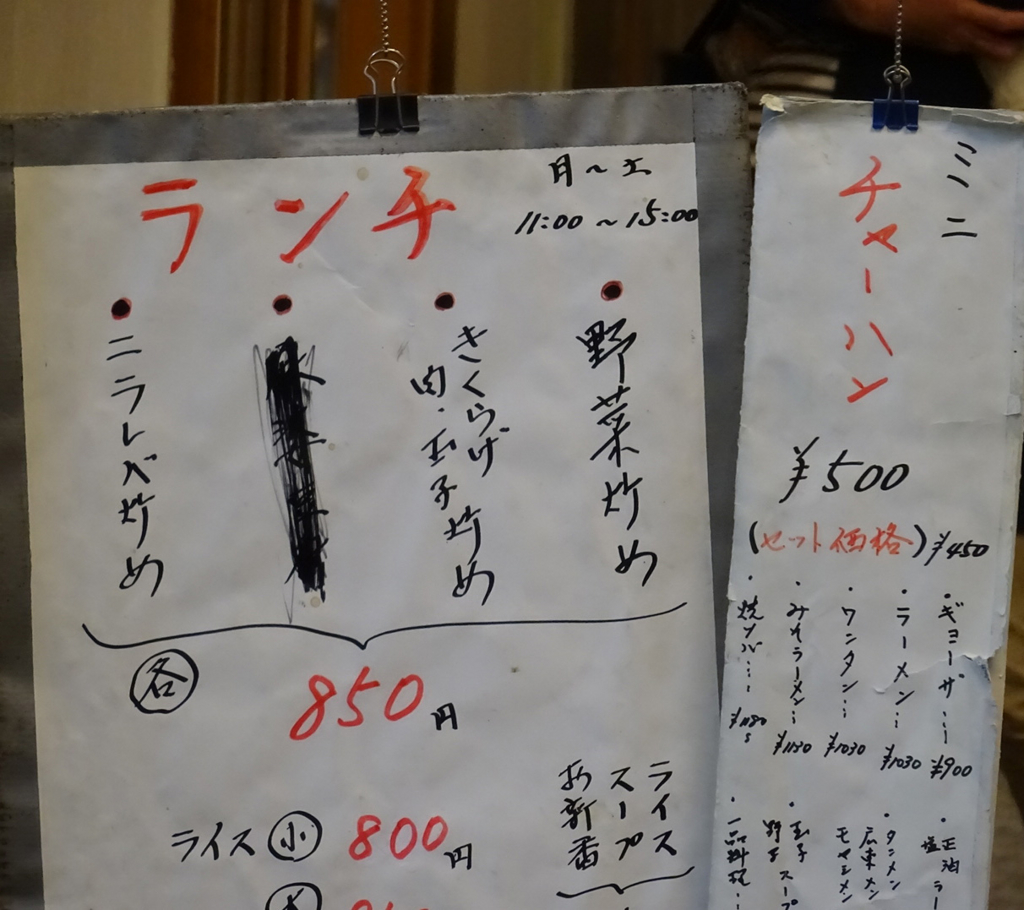 ランチ
月～土
11:00～15:00
野菜炒め
きくらげ
肉・玉子炒め
ニラレバ炒め
各
850円
ライス小 800円
ライス
スープ
お新香
ミニ
チャーハン
¥500
(セット価格)¥450
・ギョーザ…¥900
・ラーメン…¥1030
・ワンタン…¥1030
・みそラーメン…¥1130
・焼ソバ…¥1180
・正油
塩ラー
・タンメン
広東メン
モヤシメン
・玉子
野菜スープ
・一品料理